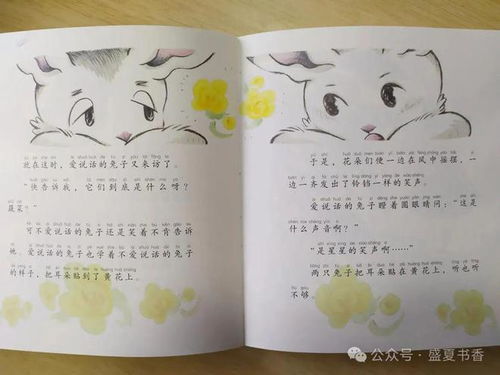 就在这时，爱说话的兔子又来访了。
“快告诉我，它们到底是什么呀？
蔬菜？”
可不爱说话的兔子还是笑着不肯告诉
她。爱说话的兔子也学着不爱说话的兔子
的样子，把耳朵贴到了黄花上。
于是，花朵们便一边在风中摇摆，一
边一齐发出了铃铛一样的笑声。
爱说话的兔子瞪着圆眼睛问：“这是
什么声音啊？”
“是星星的笑声啊……”
两只兔子把耳朵贴在黄花上，听也听
不够。
公众号·盛夏书香